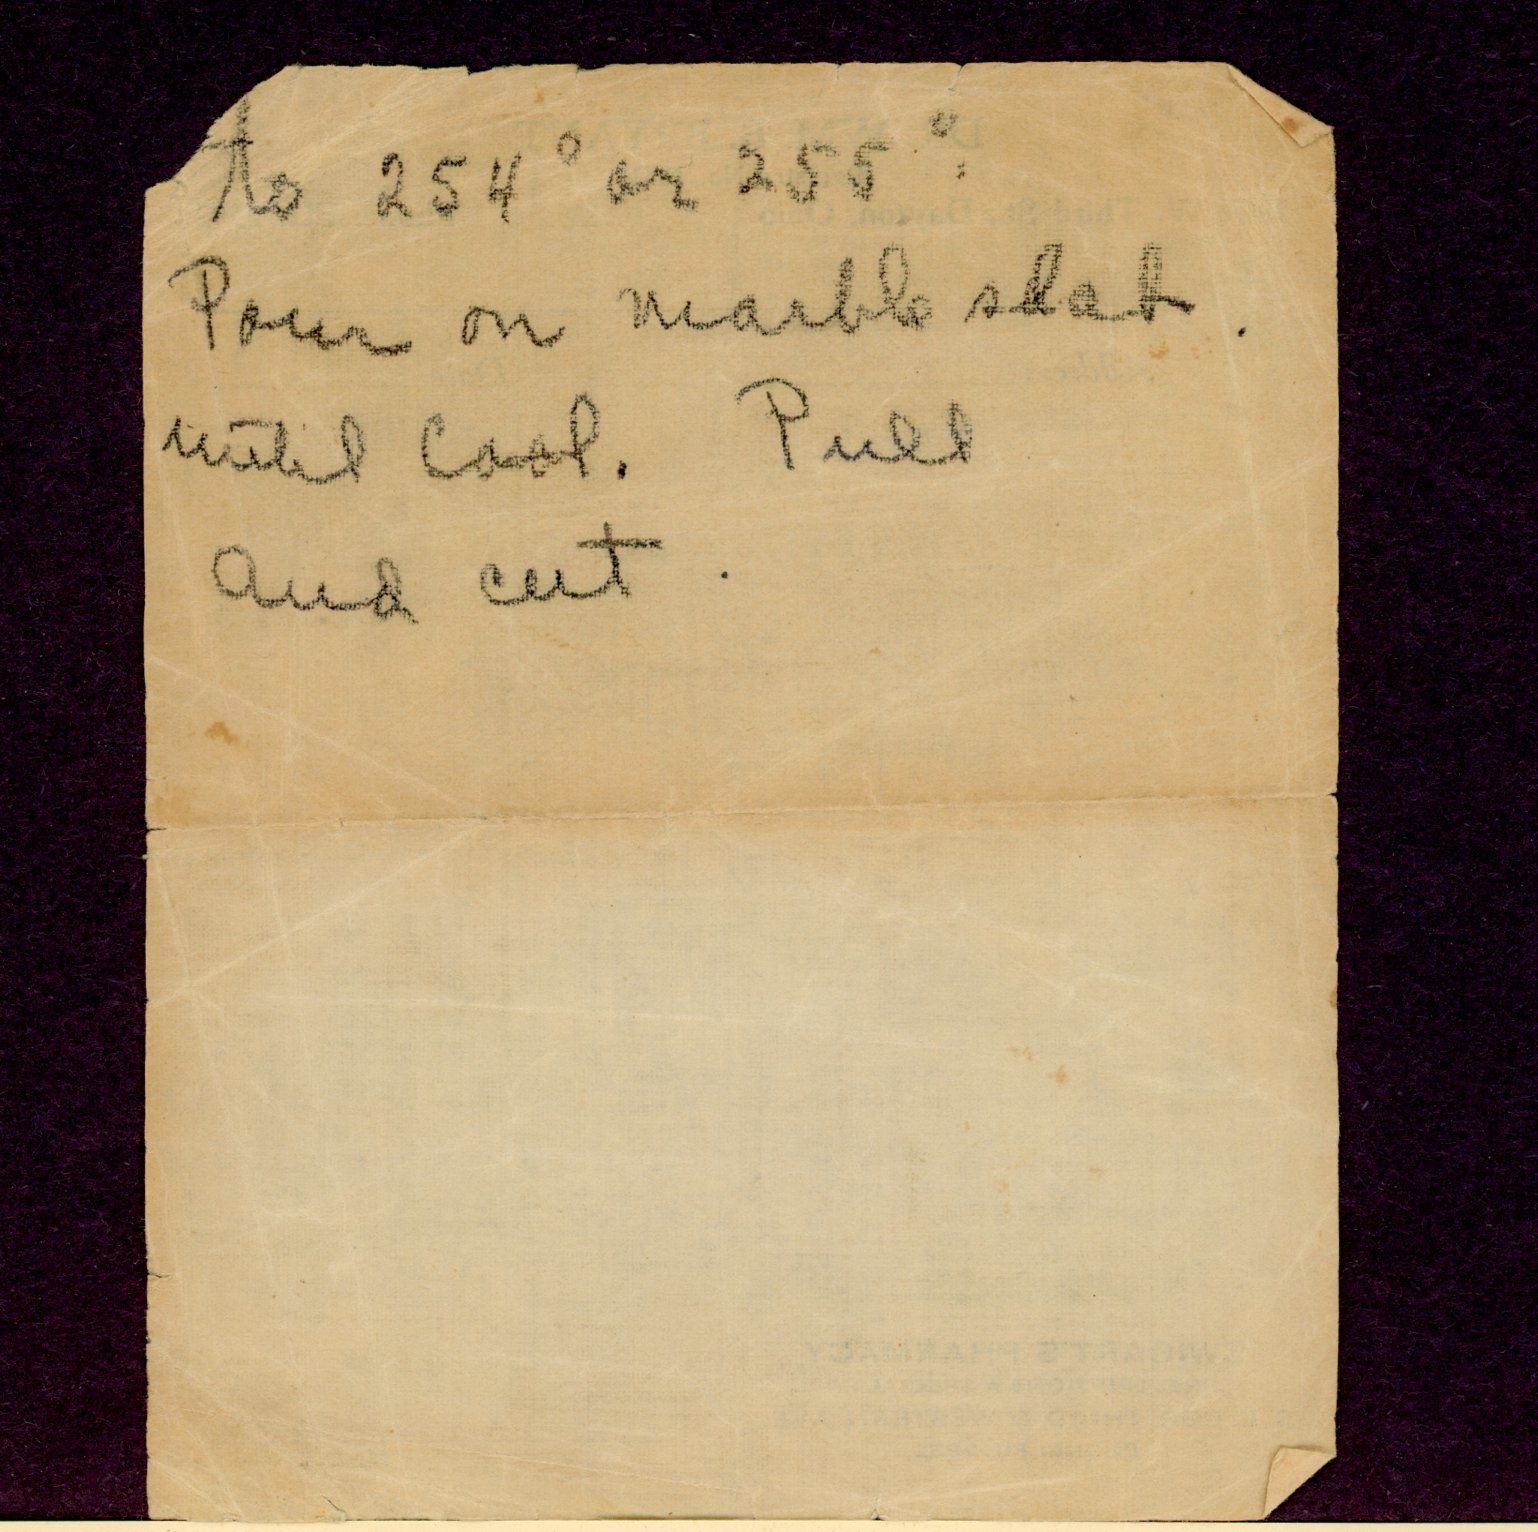 to 254° or 255°.
Pour on marble slab.
until Cool. Pull
and cut.